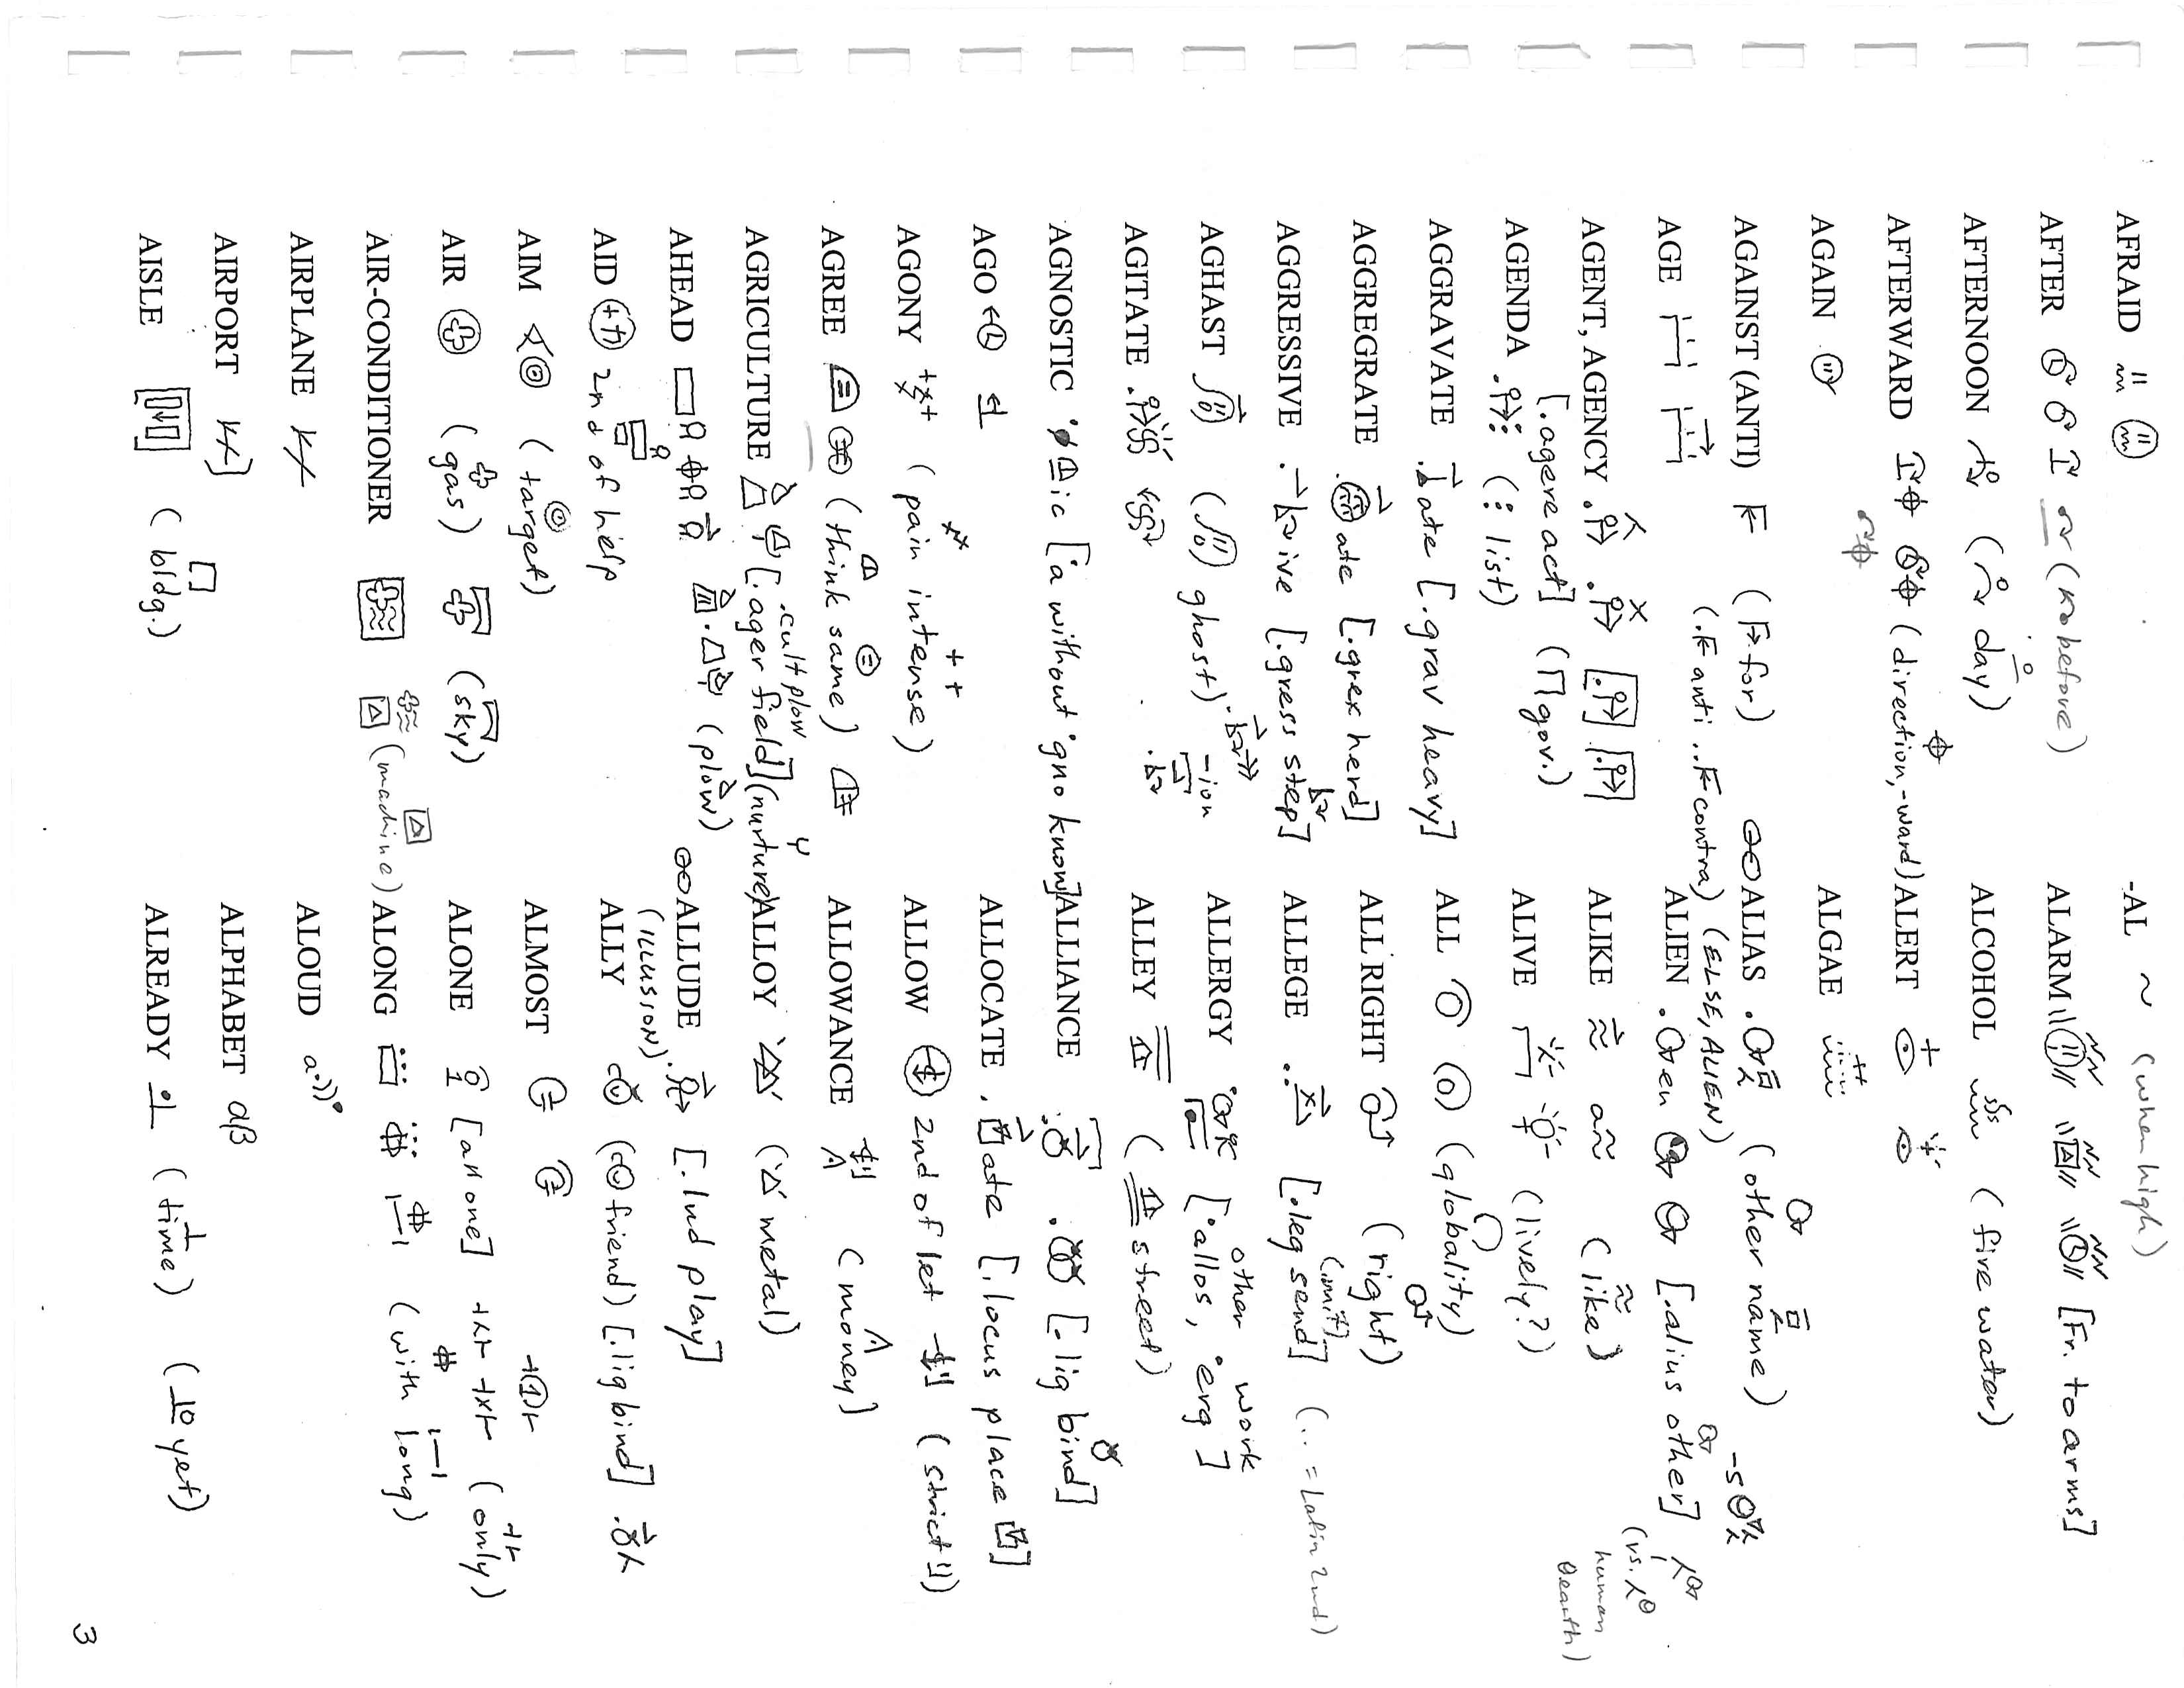 AFRAID
AFTER (before)
AFTERNOON (day)
AFTERWARD (direction, -ward)
AGAIN
AGAINST (ANTI) (for)
(. anti .. contra)
AGE
AGENT, AGENCY
[.agere act] (gov.)
AGENDA (: list)
AGGRAVATE .ate [.grav heavy]
AGGREGRATE .ate [.grex herd]
AGGRESSIVE .ive [.gress step]
AGHAST (ghost) -ion
AGITATE
AGNOSTIC ic [a without gno know]
AGO
AGONY (pain intense)
AGREE (think same)
AGRICULTURE [.ager field] .cult plow (nurture)
AHEAD (plow)
AID 2nd of help
AIM (target)
AIR (gas) (sky)
AIR-CONDITIONER (machine)
AIRPLANE
AIRPORT
AISLE (bldg.)
-AL ~ (when high)
ALARM [Fr. to arms]
ALCOHOL (fire water)
ALERT
ALGAE
ALIAS (other name)
(ELSE, ALIEN)
ALIEN .en [.alius other]
(vs. human earth)
ALIKE a (like)
ALIVE (lively?)
ALL (globality)
ALL RIGHT (right)
ALLEGE [.leg send] (omit) (.. = Latin 2nd)
ALLERGY [allos, other erg work]
ALLEY (street)
ALLIANCE [.lig bind]
ALLOCATE .ate [.locus place]
ALLOW 2nd of let (strict)
ALLOWANCE (money)
ALLOY (metal)
ALLUDE [.lud play]
(ILLUSION)
ALLY (friend) [.lig bind]
ALMOST
ALONE [all one] (only)
ALONG (with long)
ALOUD a
ALPHABET αβ
ALREADY (time) (yet)
3